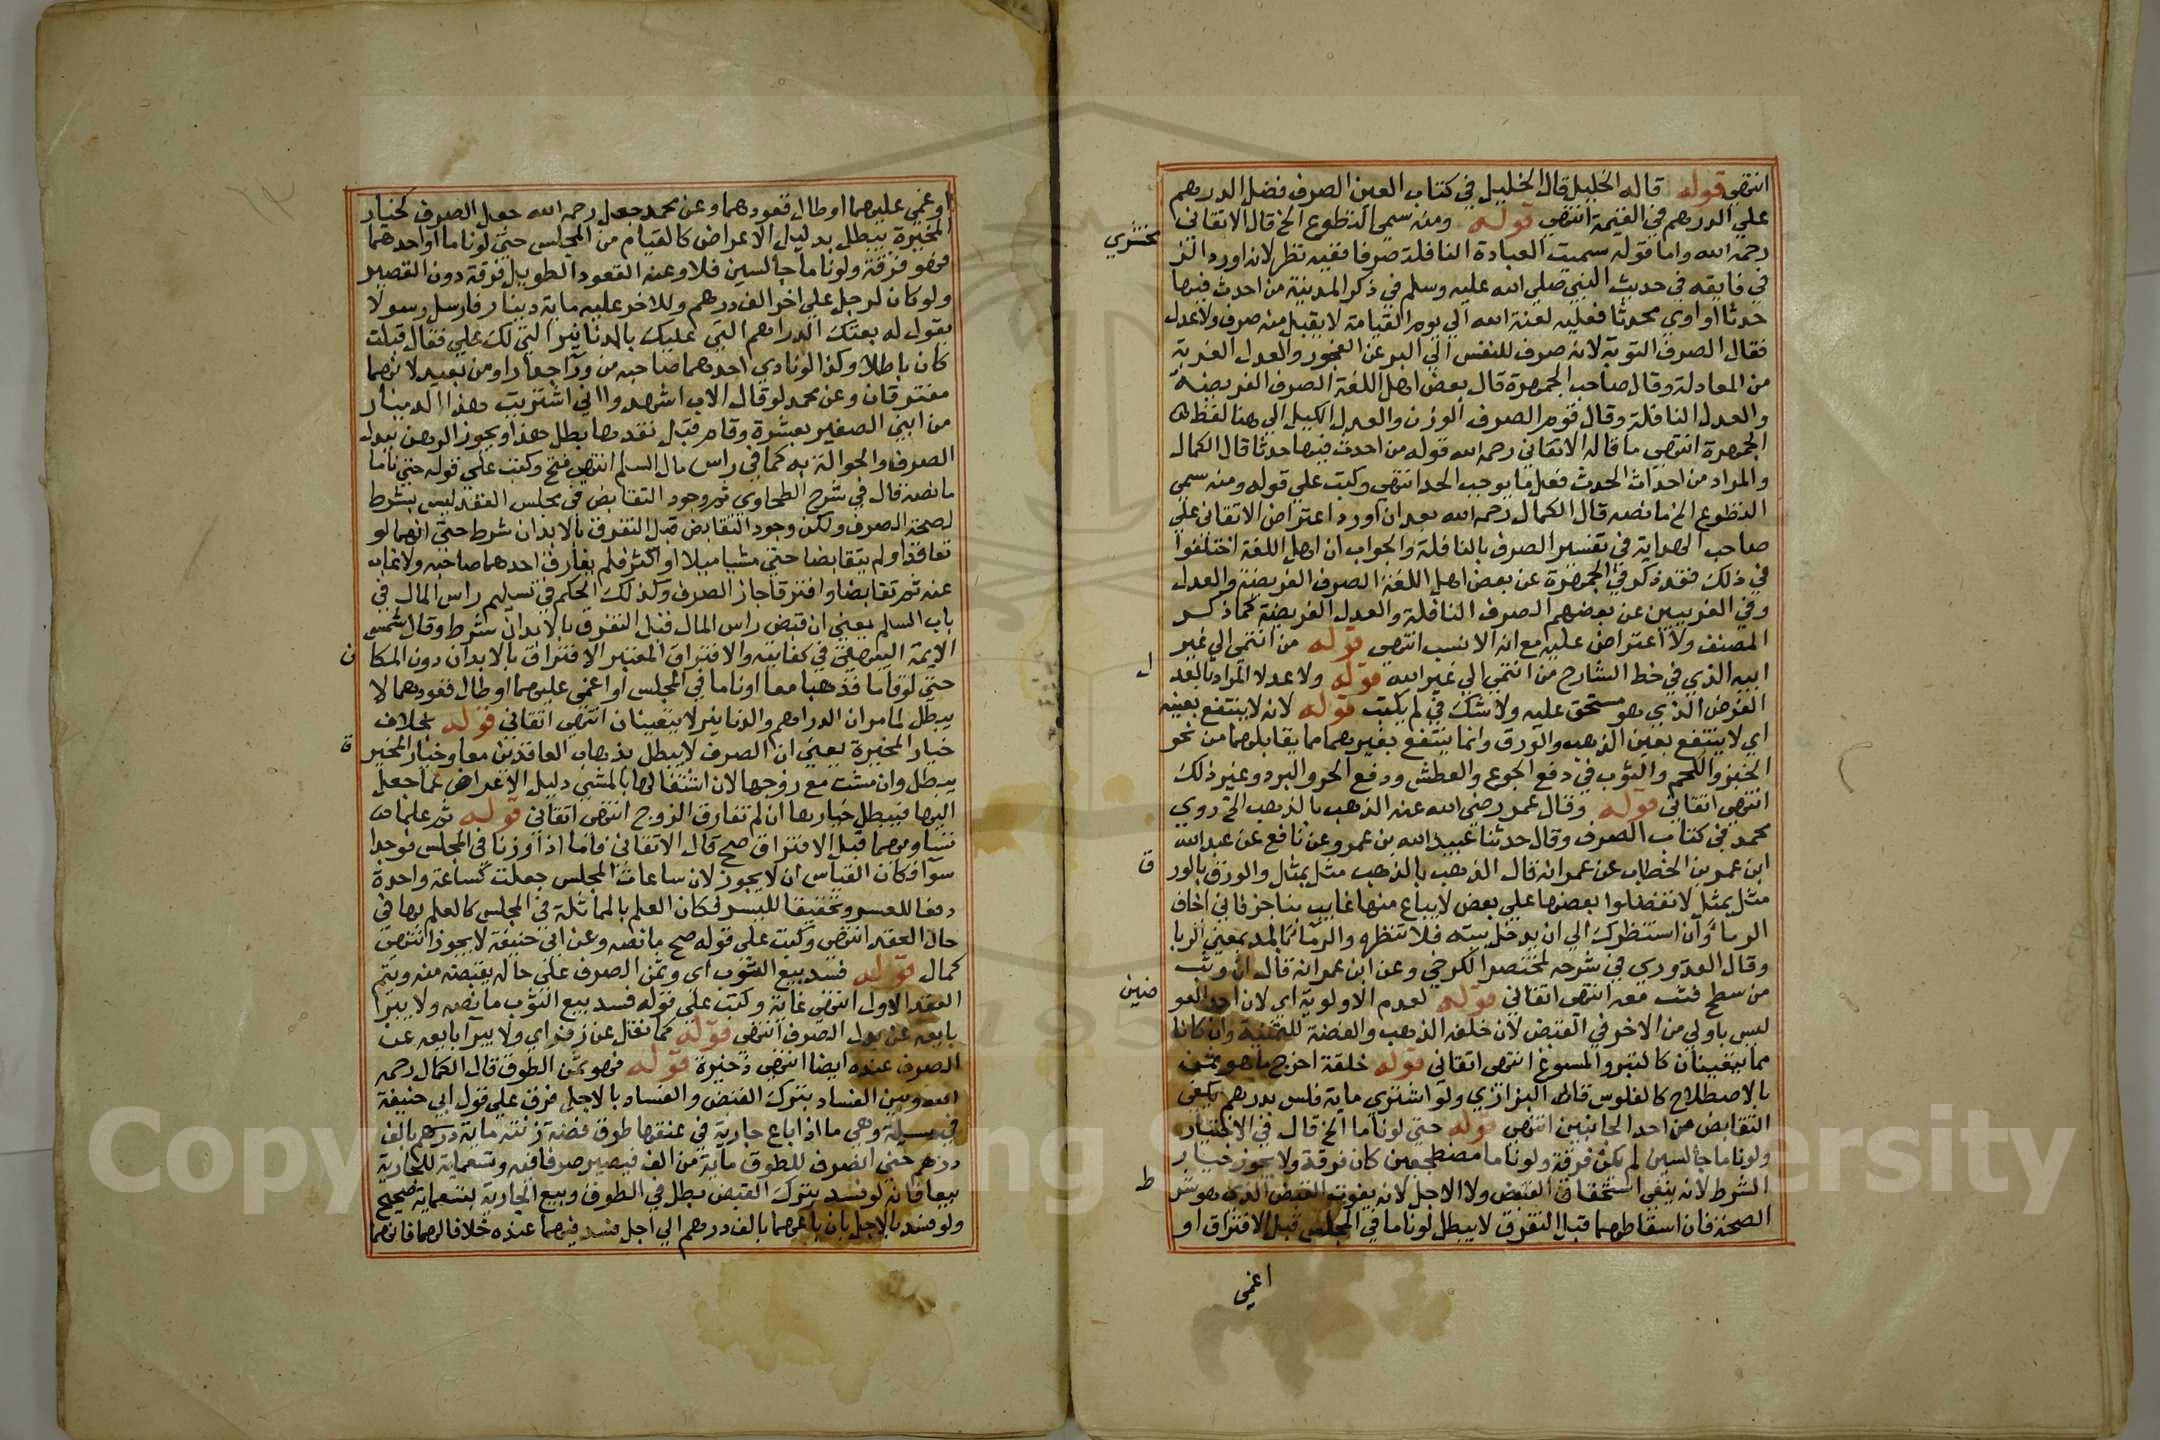 انتهي قوله قاله الخليل قال الخليل في كتاب العين الصرف فضل الدرهم
علي الدرهم في القيمة انتهي قوله ومنه سمي التطوع الخ قال الاتقاني
رحمه الله واما قوله سميت العبادة النافلة صرفا ففيه نظر لانه اورد الز
مخشري
في فايقه في حديث النبي صلي الله عليه وسلم في ذكر المدينة من احدث فيها
حدثا او اوي محدثا فعليه لعنة الله الي يوم القيامة لا يقبل منه صرف ولا عدل
فقال الصرف التوبة لانه صرف للنفس الي البر عن الفجور والعدل الفدية
من المعادلة وقال صاحب الجمهرة قال بعض اهل اللغة الصرف الفريضة
والعدل النافلة وقال قوم الصرف الوزن والعدل الكيل الي هنا لفظ
الجمهرة انتهي ما قاله الاتقاني رحمه الله قوله من احدث فيها حدثا قال الكمال
والمراد من احداث الحدث فعل ما يوجب الحد انتهي وكتب علي قوله ومنه سمي
التطوع الخ ما نصه قال الكمال رحمه الله بعد ان اورد اعتراض الاتقاني علي
صاحب الهداية في تفسير الصرف بالنافلة والجواب ان اهل اللغة اختلفوا
في ذلك فقد ذكر في الجمهرة عن بعض اهل اللغة الصرف الفريضة والعدل
وفي الغريبين عن بعضهم الصرف النافلة والعدل الفريضة كما ذكر
المصنف ولا اعتراض عليه مع انه الانسب انتهي قوله من انتمي الي غير
ابيه الذي في خط الشارح من انتمي الي غير الله قوله ولا عدلا المراد بالعد
ل
الفرض الذي هو مستحق عليه ولا شك في لم يكتب قوله لانه لا ينتفع بعينه
اي لا ينتفع بعين الذهب والورق وانما ينتفع بغيرهما مما يقابلهما من نحو
الخبز واللحم والثوب في دفع الجوع والعطش ودفع الحر والبرد وغير ذلك
انتهي اتقاني قوله وقال عمر رضي الله عنه الذهب بالذهب الخ روي
محمد في كتاب الصرف وقال حدثنا عبيد الله بن عمر وعن نافع عن عبد الله
ابن عمر بن الخطاب عن عمر انه قال الذهب بالذهب مثل بمثل والورق بالور
ق
مثل بمثل لا تفضلوا بعضها علي بعض لا يباع منها غايب بناجز فاني اخاف
الربا وان استنظرك الي ان يدخل بيته فلا تنظره والرما بالمد بمعني الربا
وقال القدوري في شرحه لمختصر الكرخي وعن ابن عمر انه قال ان وثب
من سطح فثب معه انتهي اتقاني قوله لعدم الاولوية اي لان احد العو
ضين
ليس باولي من الاخر في القبض لان خلقة الذهب والفضة للثمنية وان كانا
مما يتعينان كالتبر والمسوغ انتهي اتقاني قوله خلقة اخرج ما هو بثمن
بالاصطلاح كالفلوس قال البزازي ولو اشتري ماية فلس بدرهم يكفي
التقابض من احد الجانبين انتهي قوله حتي لو ناما الخ قال في الاختيار
ولو ناما جالسين لم تكن فرقة ولو ناما مضطجعين كان فرقة ولا يجوز خيار
الشرط لانه ينفي استحقاق القبض ولا الاجل لانه يفوت القبض الذي هو شر
ط
الصحة فان اسقاطهما قبل التفرق لا يبطل لو ناما في المجلس قبل الافتراق او
اغمي
او غمي عليهما او طال قعودهما وعن محمد جعل رحمه الله جعل الصرف كخيار
المخيرة يبطل بدليل الاعراض كالقيام من المجلس حتي لو ناما او احدهما
فهو فرقة ولو ناما جالسين فلا وعنه القعود الطويل فرقة دون القصير
ولو كان لرجل علي اخر الف درهم وللاخر عليه ماية دينار فارسل رسولا
يقول له بعتك الدراهم التي عليك بالدنانير التي لك علي فقال قبلت
كان باطلا وكذا لو نادي احدهما صاحبه من ورآ جدار او من بعيد لانهما
مفترقان وعن محمد لو قال الاب اشهدوا اني اشتريت هذا الدينار
من ابني الصغير بعشرة وقام قبل نقدها بطل هذا ويجوز الرهن ببدل
الصرف والحوالة به كما في راس مال السلم انتهي فتح وكتب علي قوله حتي ناما
ما نصه قال في شرح الطحاوي ثم وجود التقابض في مجلس العقد ليس بشرط
لصحة الصرف ولكن وجود التقابض قبل التفرق بالابدان شرط حتي انهما لو
تعاقدا ولم يتقابضا حتي مشيا ميلا او اكثر فلم يفارق احدهما صاحبه ولا غاب
عنه ثم تقابضا وافترقا جاز الصرف وكذلك الحكم في تسليم راس المال في
باب السلم يعني ان قبض راس المال قبل التفرق بالابدان شرط وقال شمس
الايمة البيهقي في كفايته والافتراق المعتبر الافتراق بالابدان دون المكا
ن
حتي لو قاما فذهبا معا او ناما في المجلس او اغمي عليهما او طال قعودهما لا
يبطل لما مر ان الدراهم والدنانير لا يتعينان انتهي اتقاني قوله بخلاف
خيار المخيرة يعني ان الصرف لا يبطل بذهاب العاقدين معا وخيار المخير
ة
يبطل وان مشت مع زوجها لان اشتغالها بالمشي دليل الاعراض عما جعل
اليها فيبطل خيارها ان لم تفارق الزوج انتهي اتقاني قوله ثم علما
تساويهما قبل الافتراق صح قال الاتقاني فاما اذا وزنا في المجلس فوجدا
سوآ فكان القياس ان لا يجوز لان ساعات المجلس جعلت كساعة واحدة
دفعا للعسر وتحقيقا لليسر فكان العلم بالمماثلة في المجلس كالعلم بها في
حال العقد انتهي وكتب علي قوله صح ما نصه وعن ابي حنيفة لا يجوز انتهي
كمال قوله فسد بيع الثوب اي وثمن الصرف علي حاله يقبضه منه ويتم
العقد الاول انتهي غاية وكتب علي قوله فسد بيع الثوب ما نصه ولا يبرا
بايعه عن بدل الصرف انتهي قوله كما نقل عن زفر اي ولا يبرآ بايعه عن
الصرف عنده ايضا انتهي ذخيرة قوله فهو ثمن الطوق قال الكمال رحمه
الله وبين الفساد بترك القبض والفساد بالاجل فرق علي قول ابي حنيفة
في مسيلة وهي ما اذا باع جارية في عنقها طوق فضة زنته ماية درهم بالف
درهم حتي الصرف للطوق ماية من الف فيصير صرفا فيه وتسعماية للجارية
بيعا فانه لو فسد بترك القبض بطل في الطوق وبيع الجارية بتسعماية صحيح
ولو فسد بالاجل بان باعهما بالف درهم الي اجل فسد فيهما عنده خلافا لهما فانهما